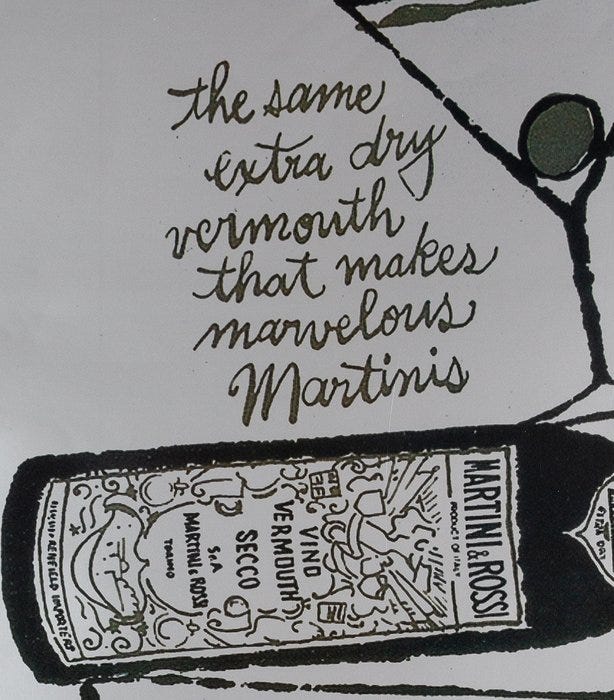 the same
extra dry
vermouth
that makes
marvelous
Martinis
MARTINI & ROSSI
PRODUCT OF ITALY
VINO
VERMOUTH
SECCO
S.p.A
MARTINI & ROSSI
TORINO
RENFIELD IMPORTERS
EXTRA DRY